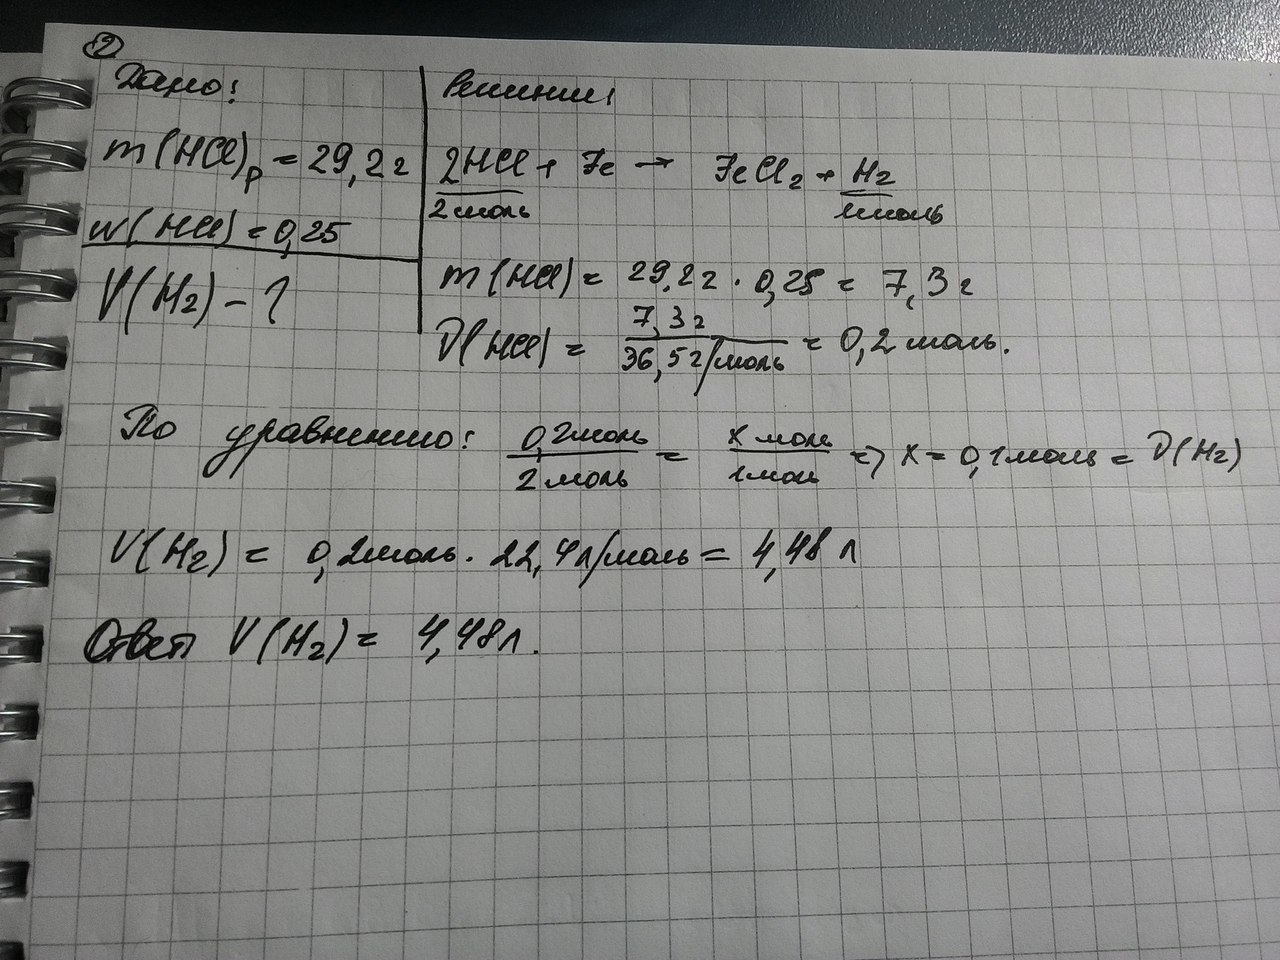 2
Дано:
m(HCl)р = 29,2г
w(HCl) = 0,25
V(H₂) - ?
Решение:
2HCl + Fe → FeCl₂ + H₂
2 моль 1 моль
m(HCl) = 29,2г · 0,25 = 7,3г
ν(HCl) = 7,3г / 36,5г/моль = 0,2 моль.
По уравнению: 0,2 моль / 2 моль = x моль / 1 моль => x = 0,1 моль = ν(H₂)
V(H₂) = 0,2 моль · 22,4 л/моль = 4,48 л
Ответ V(H₂) = 4,48 л.